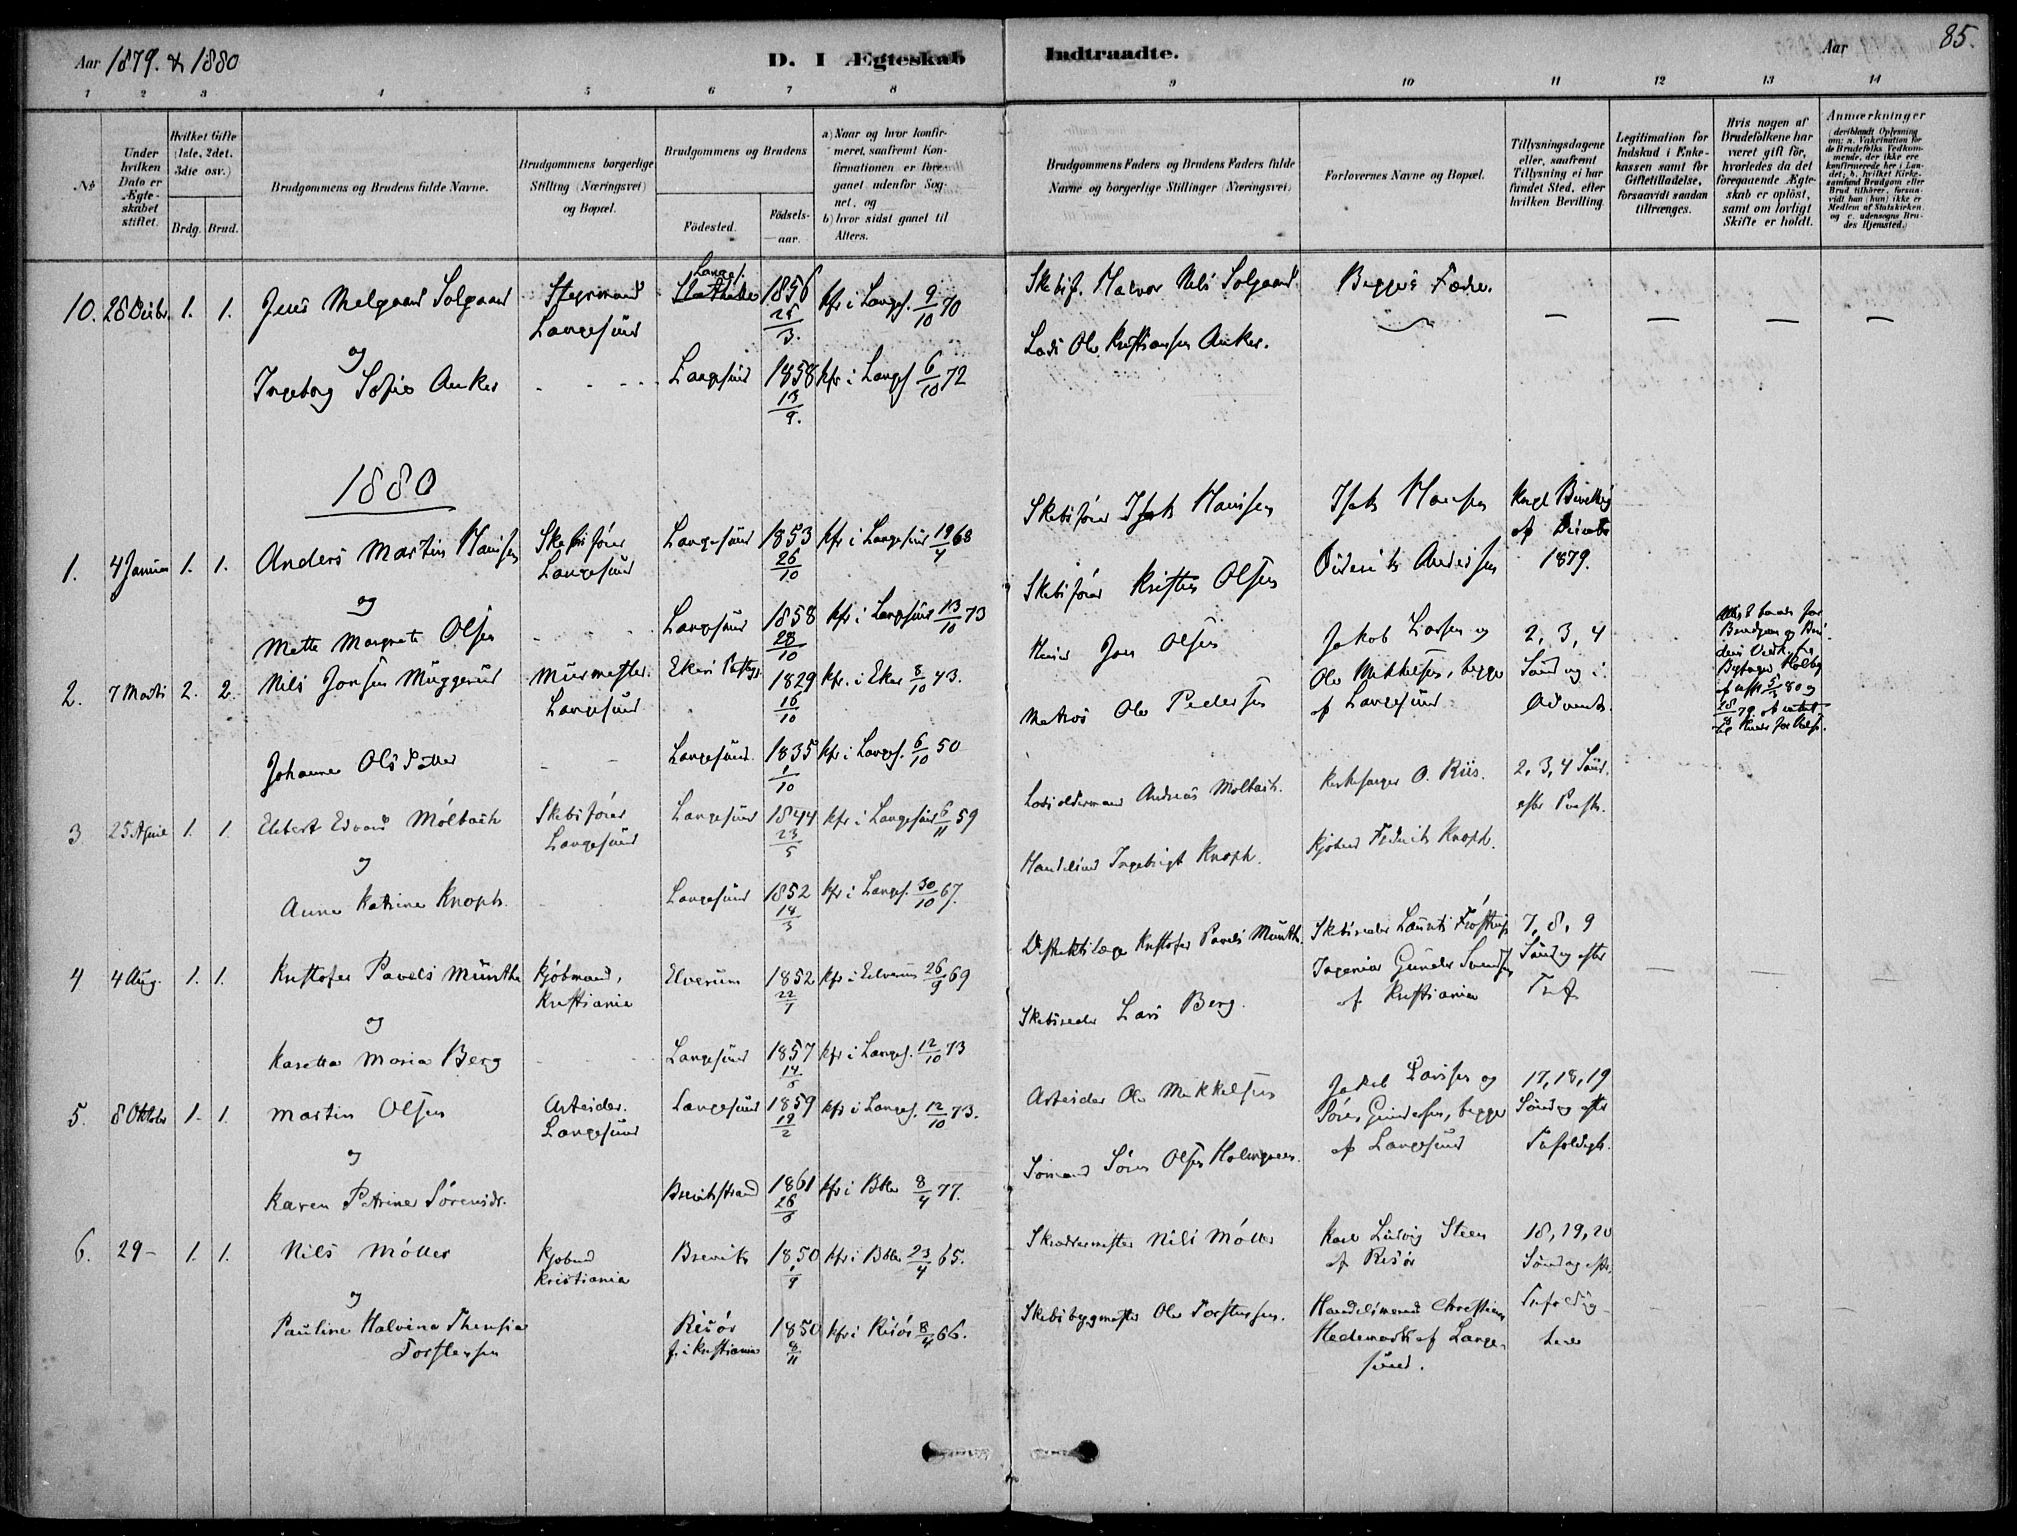 Aar 1879. & 1880
D. I Ægteskab Indtraadte.
Aar
85.
1 2 3 4 5 6 7 8 9 10 11 12 13 14
No
Under hvilken Dato er Ægteskabet stiftet.
Hvilket Gifte (1ste, 2det, 3die osv.)
Brdg. Brud.
Brudgommens og Brudens fulde Navne.
Brudgommens borgerlige Stilling (Næringsvei) og Bopæl.
Brudgommens og Brudens
Födested.
Födsels-aar.
a) Naar og hvor konfirmeret, saafremt Konfirmationen er foregaaet udenfor Sognet, og
b) hvor sidst gaaet til Alters.
Brudgommens Faders og Brudens Faders fulde Navne og borgerlige Stillinger (Næringsvei)
Forlovernes Navne og Bopæl.
Tillysningsdagene eller, saafremt Tillysning ei har fundet Sted, efter hvilken Bevilling.
Legitimation for Indskud i Enkekassen samt for Giftetilladelse, forsaavidt saadan tiltrænges.
Hvis nogen af Brudefolkene har været gift för, hvorledes da det foregaaende Ægteskab er oplöst, samt om lovligt Skifte er holdt.
Anmærkninger
(deriblandt Oplysning om: a. Vakcination for de Brudefolks Vedkommende, der ikke ere konfirmerede her i Landet; b. hvilket Kirkesamfund Brudgom eller Brud tilhörer, forsaavidt han (hun) ikke er Medlem af Statskirken, og c. udensogns Brudes Hjemsted.)
10. 28 Decbr. 1. 1. Jens Melgaard Solgaard
Styrmand Langesund
Langes. 1856 25/3. kfr i Langes. 9/10 70
Skibsf. Halvor Nils Solgaard
Begges Fædre.
og
Ingeborg Sofie Anker
Langesund 1858 13/9. kfr i Langes 6/10 72
Lods Ole Kristiansen Anker.
1880
1. 4 Januar 1. 1. Anders Martin Hansen
Skibsfører Langesund
Langesund 1853 26/10 kfr i Langesund 19/4 68
Skibsfører Isak Hansen
Isak Hansen
Kngl Bevilling af 1879.
og
Mette Margrete Olsen
Langesund 1858 28/10 kfr i Langesund 13/10 73
Skibsfører Kristen Olsen
Anders
2. 7 Marts 2. 2. Nils Jonsen Muggerud
Murmester. Langesund
Eker 1829 16/10 kfr. i Eker 8/10 43.
Jon Olsen
Jakob Larsen og Ole Mikkelsen, begge af Langesund
2, 3, 4 Sønd og i Advent.
Johanne Olsdatter
Langesund. 1835 1/10 kfr i Langes. 6/10 50
Matros Ole Pedersen
3 25 April 1. 1. Edvard Mølbach
Skibsfører Langesund
Langesund 1844 23/5 kfr i Langesund 6/11 59
Lodsoldermand Andreas Molbach.
Kirkesanger O. Riis.
2, 3, 4 Sønd. efter Paaske.
og
Anne Katrine Knoph.
Langesund 1852 18/3 kfr i Langes. 30/10 67.
Handelsmd Ingebrigt Knoph.
Kjøbmd Fredrik Knoph.
4 4 Aug. 1. 1. Kristofer Pavels Munthe
Kjøbmand, Kristiania
Elverum 1852 22/1 kfr i Elverum 26/9 69
Distriktslæge Kristofer Pavels Munthe
Skibsreder Laurits
Ingeniør Gunder Svendsen af Kristiania
7, 8, 9 Søndag efter Tref.
og
Karella Maria Berg
Langesund 1857 14/6 kfr i Langes. 12/10 73
Skibsreder Lars Berg.
5. 8 Oktober 1. 1. Martin Olsen
Arbeider. Langesund
Langesund 1859 19/2 kfr i Langes. 12/10 73.
Arbeider Ole Mikkelsen
Jakob Larsen og Søren Gundersen, begge af Langesund
17, 18, 19 Søndag efter Trefoldigh.
og
Karen Petrine Sørensdr.
Brevikstrand 1861 26/8 kfr i Bble 8/4 77.
Sømand Søren Olsen
6. 29 - 1. 1. Nils Møller
Kjøbmd Kristiania
Brevik 1850 1/9 kfr i Bble 23/4 65.
Skræddermester Nils Møller
Karl Ludvig Steen af Risør
18, 19, 20 Søndag eft. Trefoldig-
og
Pauline Halvine Theresia Torstensen
Risør f. i Kristiania 1850 8/11 kfr i Risør 8/4 66.
Skibsbygmester Ole Torstensen.
Handelsmand Christian Hedemark af Langesund.